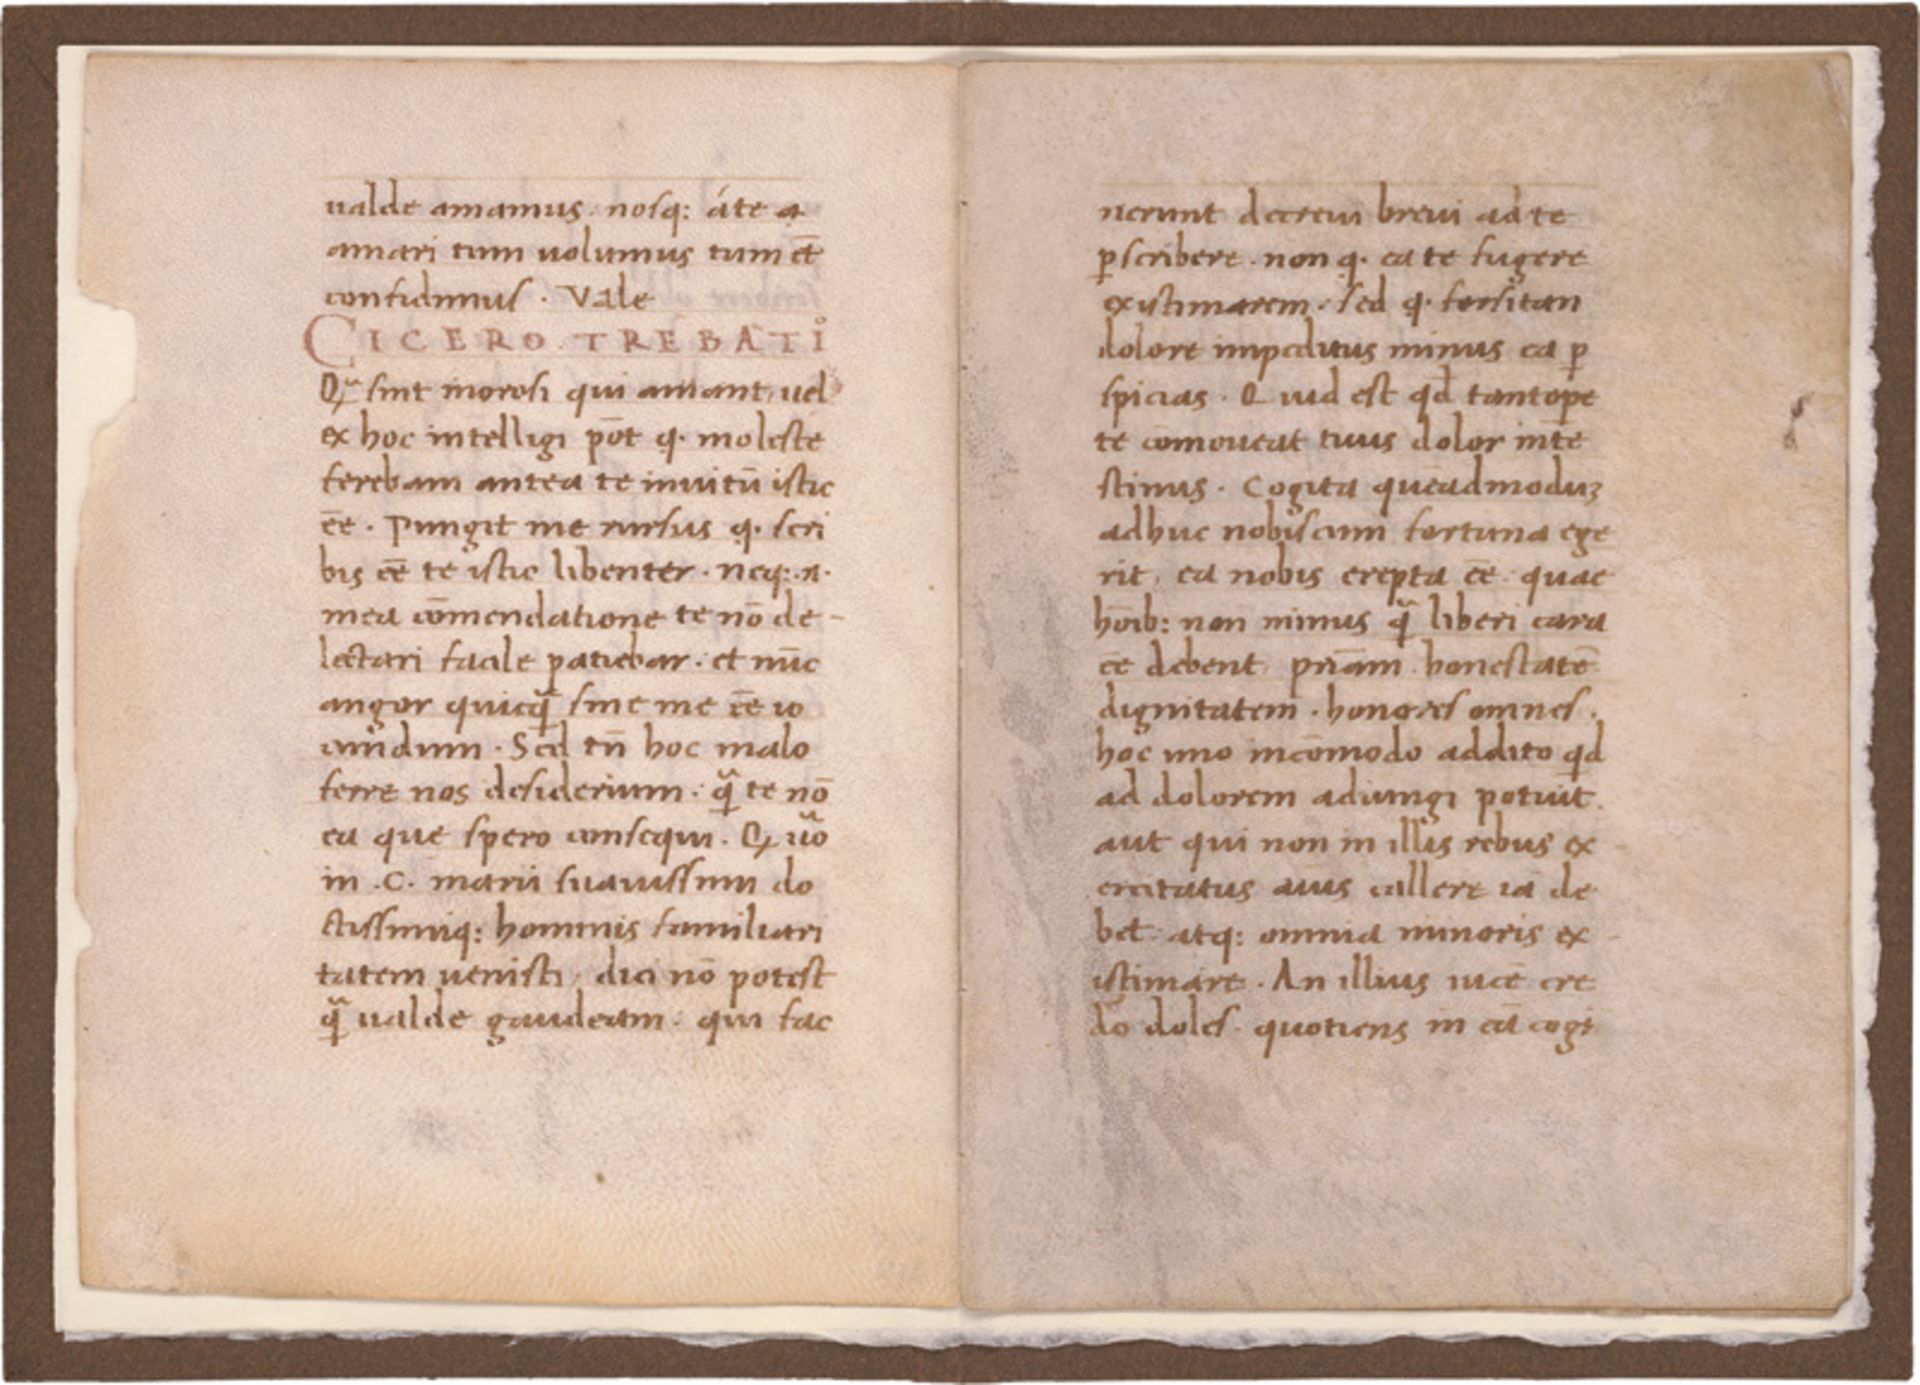 ualde amamus. nosq: áte a
amari tum uolumus tum et̄
confidimus. Vale
CICERO. TREBATIO
Qᷓ sint morosi qui amant, uel
ex hoc intelligi pōt q. moleste
ferebam antea te inuitū istic
ēē. Pungit me rursus q. scri
bis ēē te istic libenter. neq:.n.
mea cōmendatione te nō de-
lectari facile patiebar. et nūc
angor quicqᷓ sine me ēē io
cundum. Sed tn̄ hoc malo
ferre nos desiderium. qᷓ te nō
ea que spero consequi. Q uo̊
in .C. marii suauissimi do
ctissimiq: hominis familiari
tatem uenisti, dici nō potest
qᷓ ualde gaudeam. qui fac
nerunt decreui breui ad te
ꝑscribere. non q. ea te fugere
existimarem. sed q. forsitan
dolore impeditus minus ea ꝑ
spicias. Quid est qd tantope
te cōmoueat tuus dolor inte
stinus. Cogita quēadmoduꝫ
adhuc nobiscum fortuna ege
rit, ea nobis erepta ēē. quae
hoīb: non minus qᷓ liberi cara
ēē debent, pr̄iam. honestatē
dignitatem. honores omnes.
hoc uno incōmodo addito qd
ad dolorem adiungi potuit.
aut qui non in illis rebus ex-
ercitatus aīus callere iā de
bet. atq: omnia minoris ex-
istimare. An illius uicē cre
do doles. quotiens in eā cogi